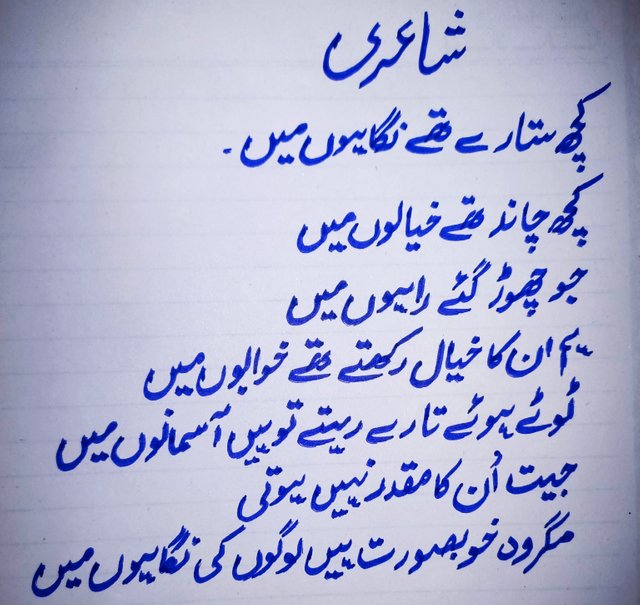 شاعری
کچھ ستارے تھے نگاہوں میں۔
کچھ چاند تھے خیالوں میں
جو چھوڑ گئے راہوں میں
ہم ان کا خیال رکھتے تھے خوابوں میں
ٹوٹے ہوئے تارے رہتے تو ہیں آسمانوں میں
جیت اُن کا مقدر نہیں ہوتی
مگر وہ خوبصورت ہیں لوگوں کی نگاہوں میں